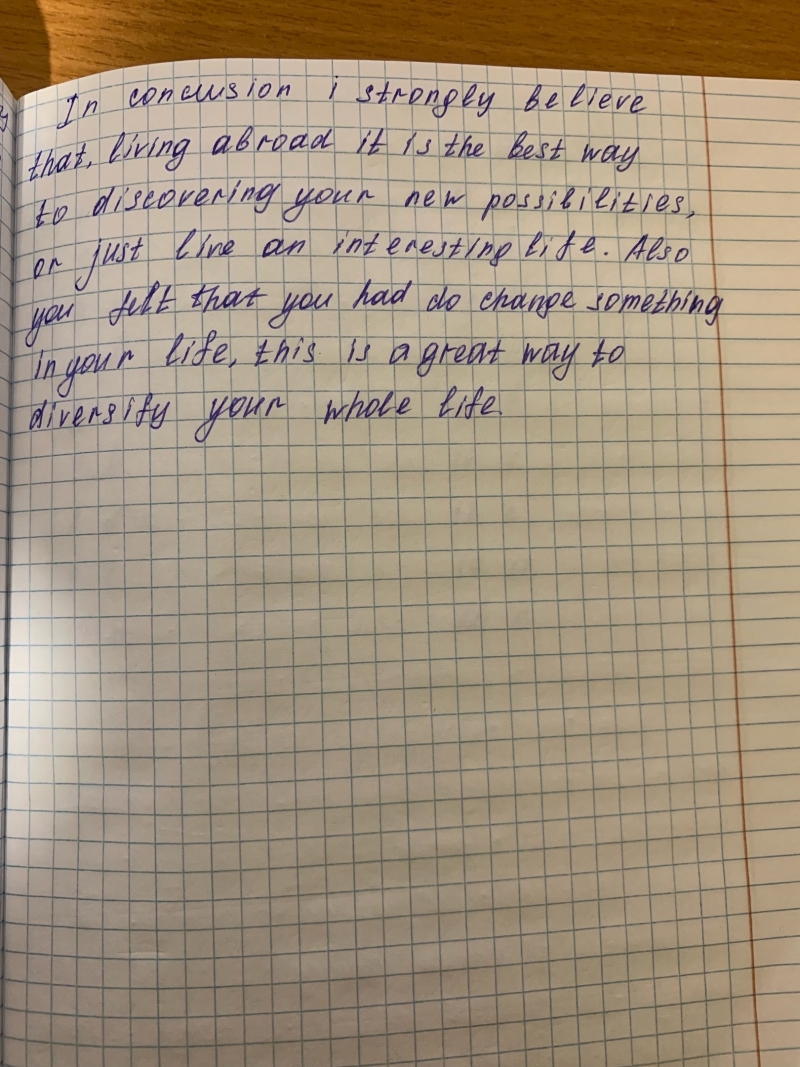 In conclusion i strongly believe
that, living abroad it is the best way
to discovering your new possibilities,
or just live an interesting life. Also
you felt that you had do change something
in your life, this is a great way to
diversify your whole life.